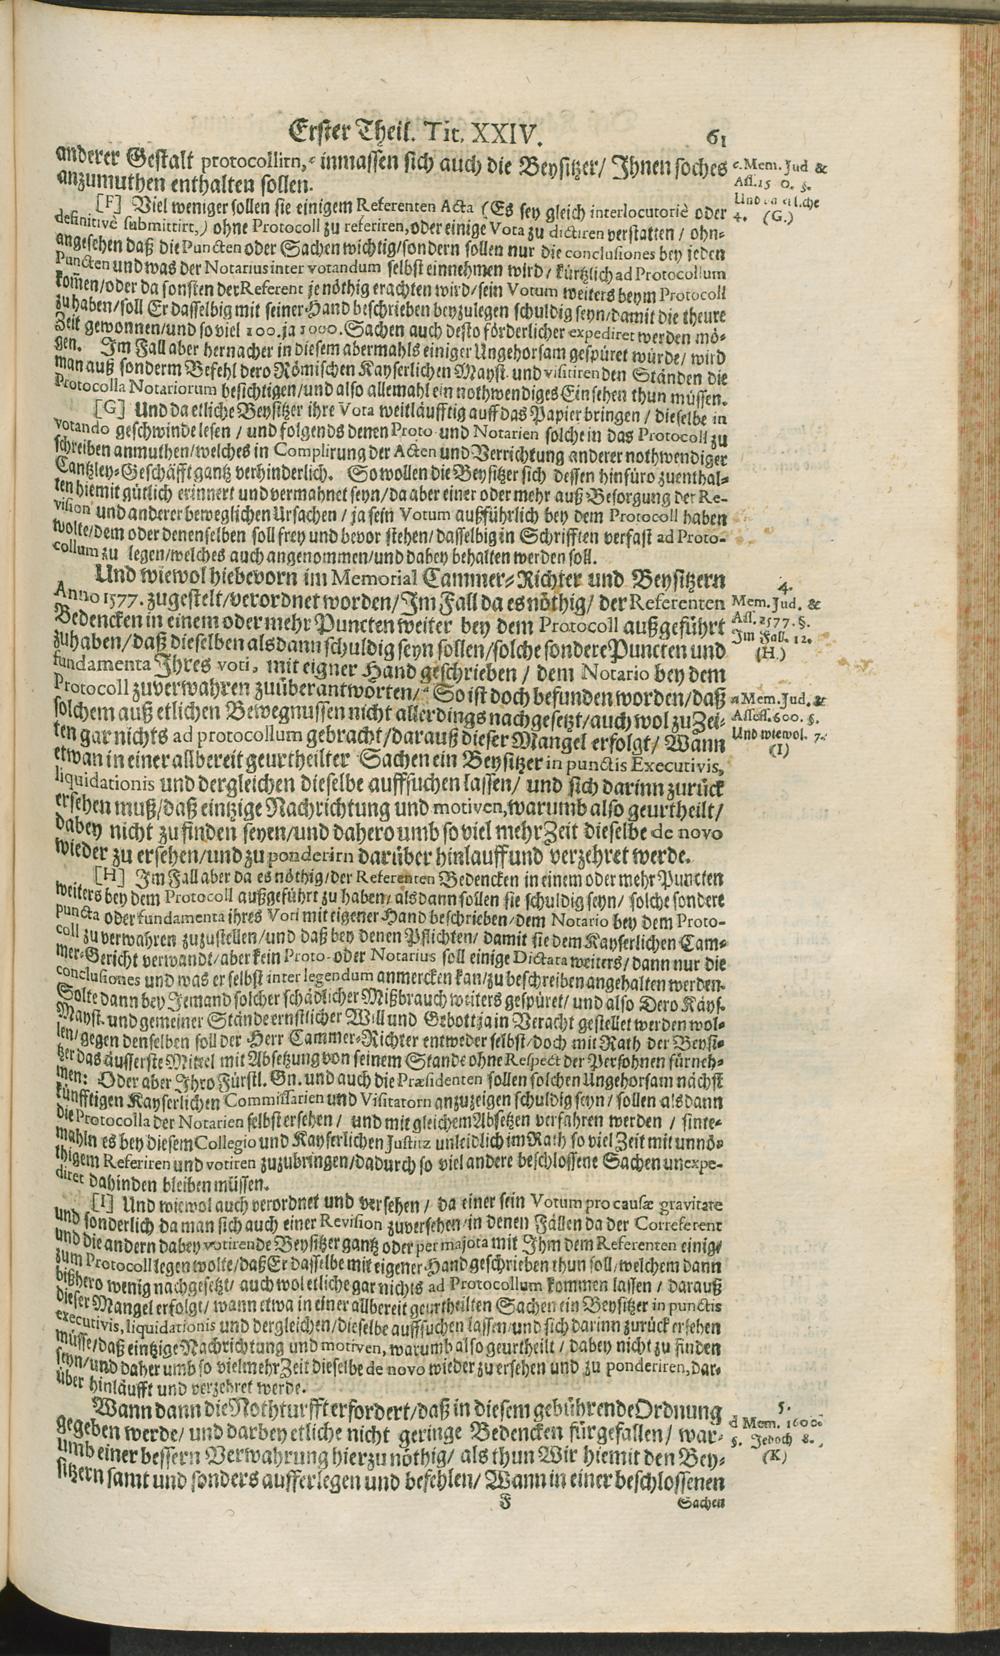 Erster Theil. Tit. XXIV. 61
anderer Gestalt protocollirn, c inmassen sich auch die Beysitzer/ Ihnen soches
anzumuthen enthalten sollen.
c. Mem. Jud &
Ass. 15 0. §.
Und
4. (G.)
[F] Viel weniger sollen sie einigem Referenten Acta (Es sey gleich interlocutoriè oder
definitivè submittirt,) ohne Protocoll zu referiren, oder einige Vota zu dictiren verstatten / ohn-
angesehen daß die Puncten oder Sachen wichtig/sondern sollen nur die conclusiones bey jeden
Puncten und was der Notarius inter votandum selbst einnehmen wird / kürtzlich ad Protocollum
kom̃en/oder da sonsten der Referent je nöthig erachten wird/sein Votum weiters beym Protocoll
zu haben/soll Er dasselbig mit seiner Hand beschrieben beyzulegen schuldig seyn/damit die theure
Zeit gewonnen/und so viel 100. ja 1000. Sachen auch desto förderlicher expediret werden mö-
gen. Im Fall aber hernacher in diesem abermahls einiger Ungehorsam gespüret würde/ wird
man auß sonderm Befehl dero Römischen Kayserlichen Mayst. und visitirenden Ständen die
Protocolla Notariorum besichtigen/und also allemahl ein nothwendiges Einsehen thun müssen.
[G] Und da etliche Beysitzer ihre Vota weitläufftig auff das Papier bringen / dieselbe in
votando geschwinde lesen / und folgends denen Proto- und Notarien solche in das Protocoll zu
schreiben anmuthen/welches in Complirung der Acten und Verrichtung anderer nothwendiger
Cantzley-Geschäfft gantz verhinderlich. So wollen die Beysitzer sich dessen hinfüro zuenthal-
ten hiemit gütlich erinnert und vermahnet seyn/da aber einer oder mehr auß Besorgung der Re-
vision und anderer beweglichen Ursachen / ja sein Votum außführlich bey dem Protocoll haben
wolte/dem oder denenselben soll frey und bevor stehen/ dasselbig in Schrifften verfast ad Proto-
collum zu legen/welches auch angenommen/und dabey behalten werden soll.
Und wiewol hiebevorn im Memorial Cammer-Richter und Beysitzern
Anno 1577. zugestelt/verordnet worden/Im Fall da es nöthig/ der Referenten
Bedencken in einem oder mehr Puncten weiter bey dem Protocoll außgeführt
zuhaben/daß dieselben alsdann schuldig seyn sollen/solche sondere Puncten und
fundamenta Ihres voti, mit eigner Hand geschrieben / dem Notario bey dem
Protocoll zuverwahren zuüberantworten/ a So ist doch befunden worden/daß
solchem auß etlichen Bewegnussen nicht allerdings nachgesetzt/auch wol zu Zei-
ten gar nichts ad protocollum gebracht/darauß dieser Mangel erfolgt/ Wann
etwan in einer allbereit geurtheilter Sachen ein Beysitzer in punctis Executivis,
liquidationis und dergleichen dieselbe auffsuchen lassen/ und sich darinn zurück
ersehen muß/daß eintzige Nachrichtung und motiven, warumb also geurtheilt/
dabey nicht zu finden seyen/und dahero umb so viel mehr Zeit dieselbe de novo
wieder zu ersehen/und zu ponderirn darüber hinlauff und verzehret werde.
4.
Mem. Jud. &
Ass. 1577. §.
Im Fall. 12.
(H.)
a Mem. Jud. &
Assess. 600. §.
Und wiewol. 7.
(I)
[H] Im Fall aber da es nöthig/der Referenten Bedencken in einem oder mehr Puncten
weiters bey dem Protocoll außgeführt zu haben/ alsdann sollen sie schuldig seyn / solche sondere
puncta oder fundamenta ihres Voti mit eigener Hand beschrieben/dem Notario bey dem Proto-
coll zu verwahren zuzustellen/und daß bey denen Pflichten/ damit sie dem Kayserlichen Cam-
mer-Gericht verwandt/aber kein Proto- oder Notarius soll einige Dictata weiters / dann nur die
conclusiones und was er selbst inter legendum anmercken kan/zu beschreiben angehalten werden.
Solte dann bey Jemand solcher schädlicher Mißbrauch weiters gespüret/ und also Dero Käys.
Mayst. und gemeiner Stände ernstlicher Will und Gebott ja in Veracht gestellet werden wol-
len/gegen denselben soll der Herr Cammer-Richter entweder selbst/doch mit Rath der Beysi-
tzer das äusserste Mittel mit Absetzung von seinem Stande ohne Respect der Persohnen fürneh-
men: Oder aber Ihro Fürstl. Gn. und auch die Præsidenten sollen solchen Ungehorsam nächst
künfftigen Kayserlichen Commissarien und Visitatorn anzuzeigen schuldig seyn / sollen alsdann
die Protocolla der Notarien selbst ersehen / und mit gleichem Absetzen verfahren werden / sinte-
mahln es bey diesem Collegio und Kayserlichen Justitz unleidlich im Rath so viel Zeit mit unnö-
thigem Referiren und votiren zuzubringen/dadurch so viel andere beschlossene Sachen unexpe-
diret dahinden bleiben müssen.
[I] Und wiewol auch verordnet und versehen / da einer sein Votum pro causæ gravitate
und sonderlich da man sich auch einer Revision zuversehen/in denen Fällen da der Correferent
und die andern dabey votirende Beysitzer gantz oder per majora mit Ihm dem Referenten einig/
zum Protocoll legen wolte/daß Er dasselbe mit eigener Hand geschrieben thun soll/welchem dann
bißhero wenig nachgesetzt/ auch wol etliche gar nichts ad Protocollum kommen lassen / darauß
dieser Mangel erfolgt/ wann etwa in einer allbereit geurtheilten Sachen ein Beysitzer in punctis
executivis, liquidationis und dergleichen/dieselbe auffsuchen lassen/und sich darinn zurück ersehen
müsse/daß eintzige Nachrichtung und motiven, warumb also geurtheilt / dabey nicht zu finden
seyn/und daher umb so viel mehr Zeit dieselbe de novo wieder zu ersehen und zu ponderiren, dar-
über hinläufft und verzehret werde.
Wann dann die Nothturfft erfordert/daß in diesem gebührende Ordnung
gegeben werde/ und darbey etliche nicht geringe Bedencken fürgefallen/ war-
umb einer bessern Verwahrung hierzu nöthig/ als thun Wir hiemit den Bey-
sitzern samt und sonders aufferlegen und befehlen/ Wann in einer beschlossenen
5.
d Mem. 1600
§. Jedoch 8.
(K)
F Sachen